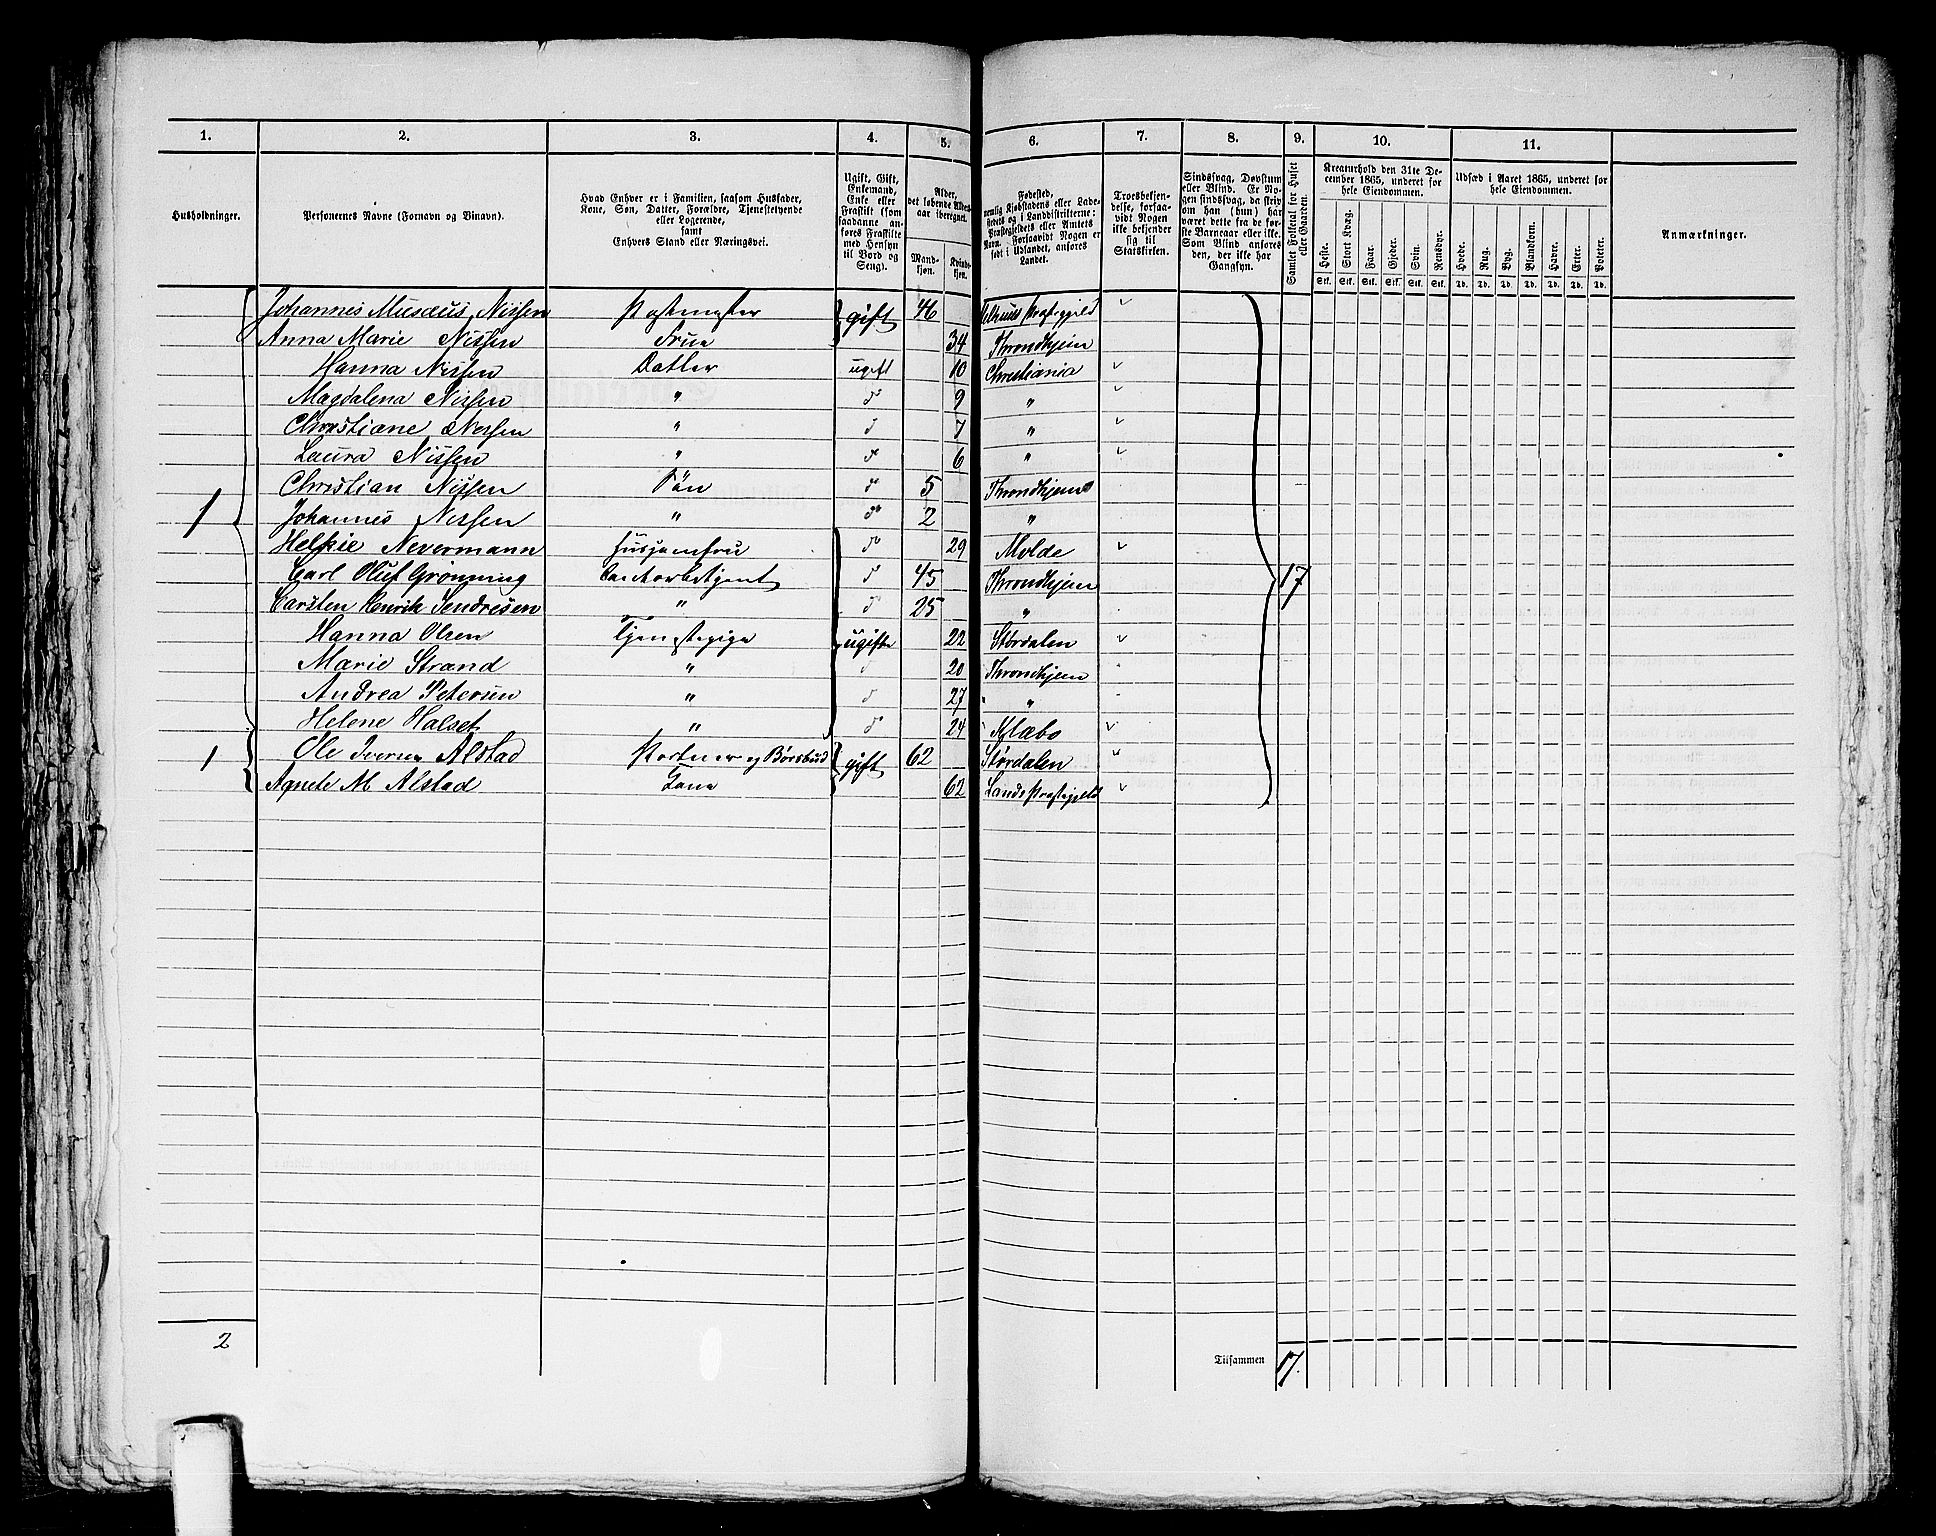 1. 2. 3. 4. 5. 6. 7. 8. 9. 10. 11.
Husholdninger.
Personernes Navne (Fornavn og Vinavn).
Hvad Enhver er i Familien, saasom Husfader,
Kone, Søn, Datter, Forældre, Tjenestetyende
eller Logerende,
samt
Enhvers Stand eller Næringsvei.
Ugift, Gift,
Enkemand,
Enke eller
Fraskilt (som
saadanne an-
føres Fraskilte
med Hensyn
til Bord og
Seng).
Alder,
det løbende Alders-
aar iberegnet.
Mand-
kjøn.
Kvind-
kjøn.
Fødested,
nemlig Kjøbstadens eller Lade-
stedets og i Landdistrikterne:
Præstegjeldets eller Amtets
Navn. Forsaavidt Nogen er
født i Udlandet, anføres
Landet.
Troesbekjen-
delse, forsaa-
vidt Nogen
ikke bekjender
sig til
Statskirken.
Sindssvag, Døvstum
eller Blind. Er No-
gen sindssvag, da skriv
om han (hun) har
været dette fra de før-
ste Barneaar eller ikke.
Som Blind anføres
den, der ikke har
Gangsyn.
Samlet Folketal for Huset
eller Gaarden.
Kreaturhold den 31te De-
cember 1865, underet for
hele Eiendommen.
Heste. Stort Kvæg. Faar. Gjeder. Svin. Rensdyr.
Stk. Stk. Stk. Stk. Stk. Stk.
Udsæd i Aaret 1865, underet for
hele Eiendommen.
Hvede. Rug. Byg. Blandkorn. Havre. Erter. Poteter.
Td. Td. Td. Td. Td. Td. Td.
Anmærkninger.
Johannes Musæus Nissen Postmester gift 46 Præstegjeld
Anna Marie Nissen Frue 34 Throndhjem
Hanna Nissen Datter ugift 10 Christiania
Magdalena Nissen " do 9 "
Christiane Nissen " do 7 "
Laura Nissen " do 6 "
Christian Nissen Søn do 5 Throndhjem
1 Johannes Nissen " do 2 "
Nevermann Husjomfru do 29 Molde
Carl Oluf Grønning Contorbetjent do 45 Throndhjem 17
Carsten Henrik " do 25 "
Hanna Olsen Tjenestepige ugifte 22 Størdalen
Marie Strand " do 20 Throndhjem
Andrea Petersen " do 27 "
Helene Halset " do 24 Klæbo
1 Ole Iversen Alstad Portner og Børsbud gift 62 Størdalen
Agnete M Alstad Kone 62 Præstegjeld
2
Tilsammen 17.